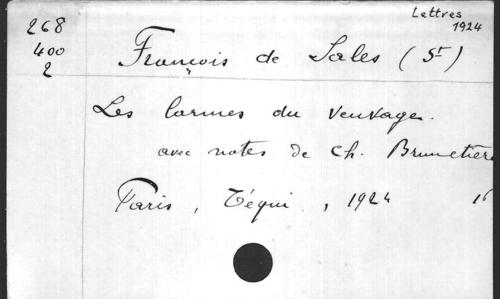 Lettres
1924
268
400
2
François de Sales (St)
Les larmes du veuvage.
avec notes de Ch. Brunetière
Paris, Téqui, 1924 16